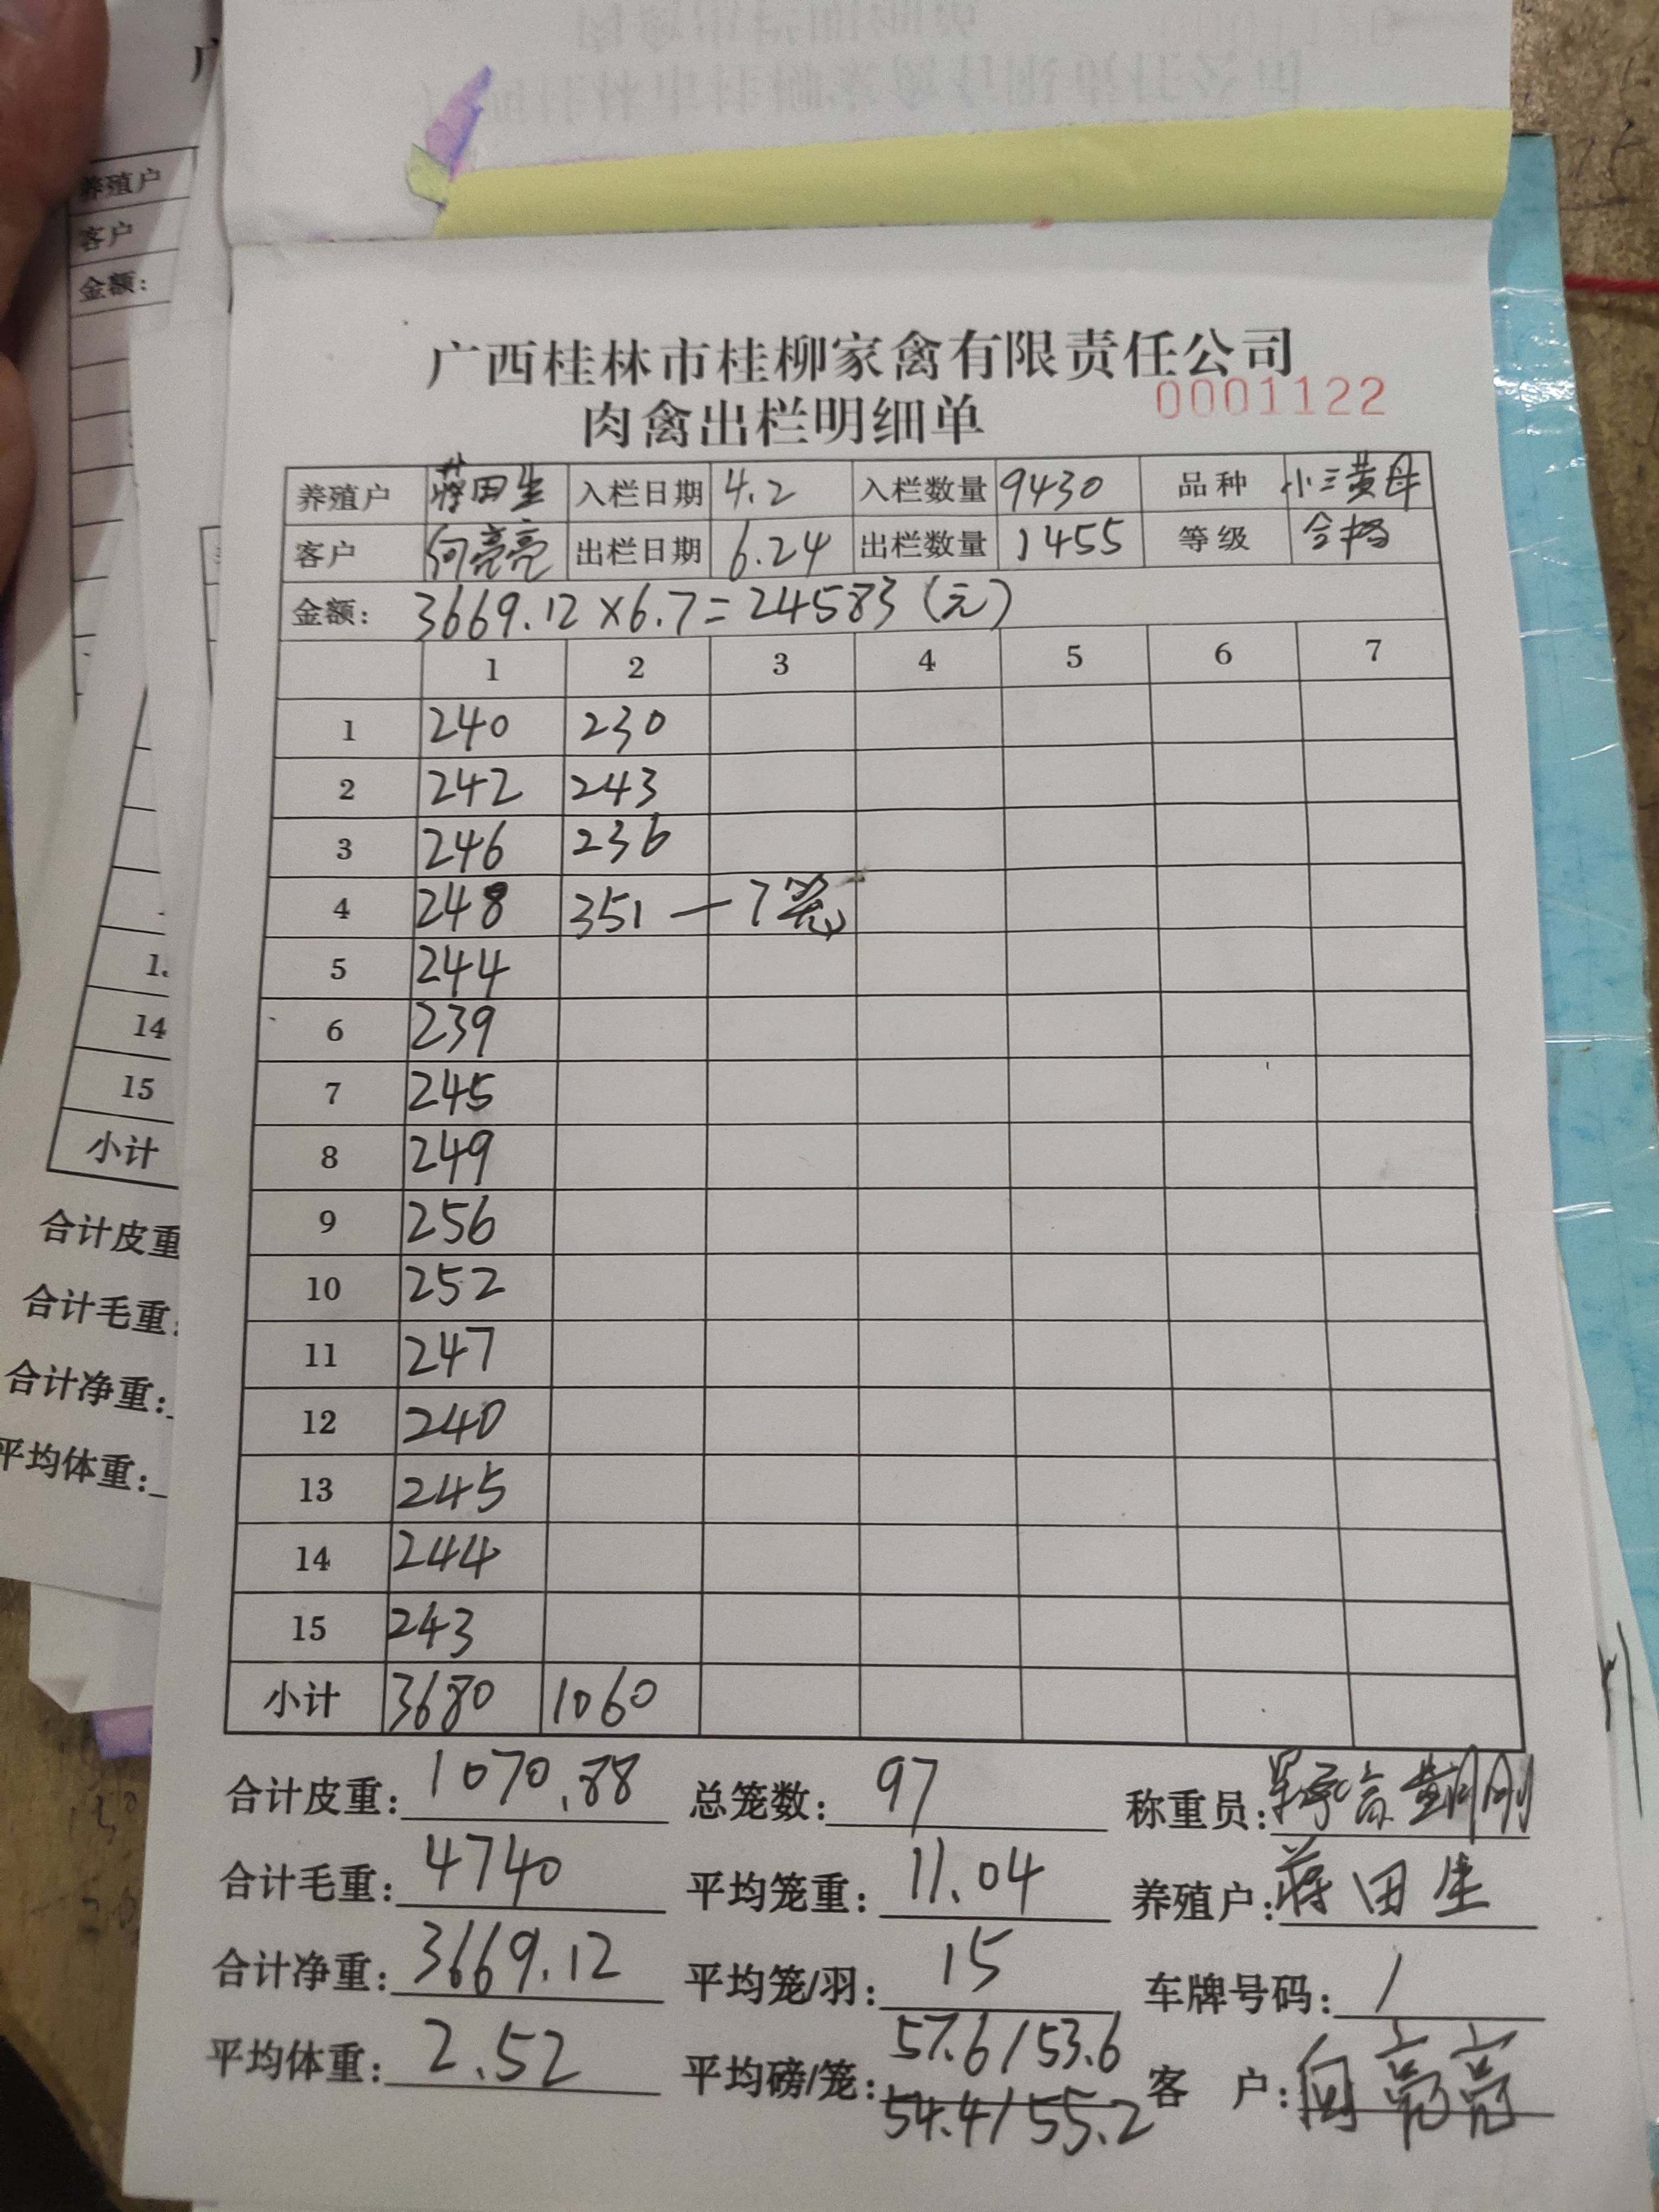 广西桂林市桂柳家禽有限责任公司
肉禽出栏明细单 0001122
养殖户 蒋田生 入栏日期 4.2 入栏数量 9430 品种 小三黄母
客户 何亮亮 出栏日期 6.24 出栏数量 1455 等级 合格
金额: 3669.12×6.7=24583(元)
1 2 3 4 5 6 7
1 240 230
2 242 243
3 246 236
4 248 351 — 7笼
5 244
6 239
7 245
8 249
9 256
10 252
11 247
12 240
13 245
14 244
15 243
小计 3680 1060
合计皮重: 1070.88 总笼数: 97 称重员:
合计毛重: 4740 平均笼重: 11.04 养殖户: 蒋田生
合计净重: 3669.12 平均笼/羽: 15 车牌号码: /
平均体重: 2.52 平均磅/笼: 57.6/53.6 客 户: 何亮亮
54.4/55.2
养殖户
客户
金额:
14
15
小计
合计皮重
合计毛重:
合计净重:
平均体重: